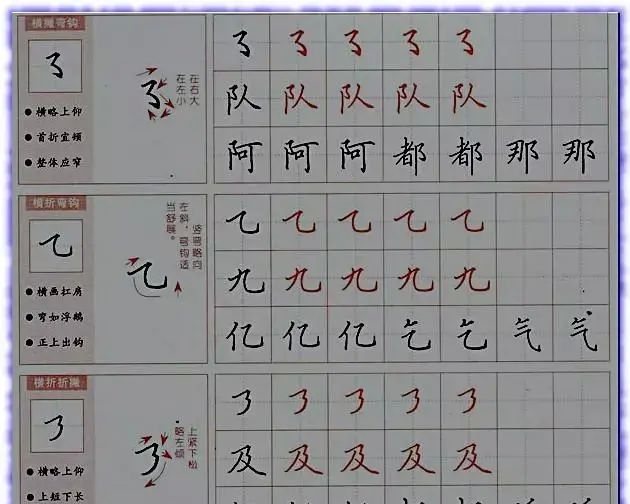 横撇弯钩
横略上仰
首折宜倾
整体应窄
在右大
在左小
队 队 队 队 队
阿 阿 阿 都 都 那 那
横折弯钩
横画扛肩
弯如浮鹅
正上出钩
竖弯略向
左斜，弯钩适
当舒展。
乙 乙 乙 乙 乙
九 九 九 九 九
亿 亿 亿 乞 乞 气 气
横折折撇
横略上仰
上短下长
上紧下松
略左倾
及 及 及 及 及